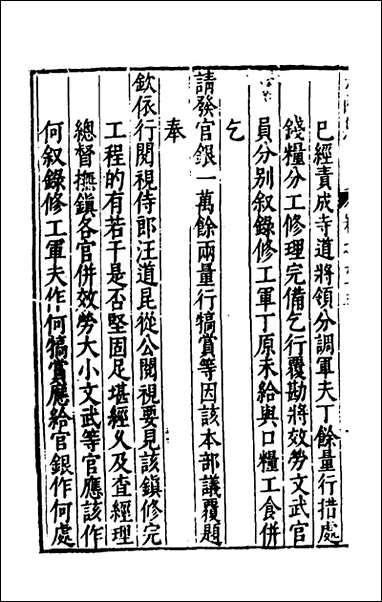 已經責成寺道將領分調軍夫丁餘量行措處
錢糧分工修理完備乞行覆勘將效勞文武官
員分別叙錄修工軍丁原未給與口糧工食併
乞
請發官銀一萬餘兩量行犒賞等因該本部議覆題
奉
欽依行閱視侍郎汪道昆從公閱視要見該鎮修完
工程的有若干是否堅固足堪經久及查經理
總督撫鎮各官併效勞大小文武等官應該作
何叙錄修工軍夫作何犒賞應給官銀作何處